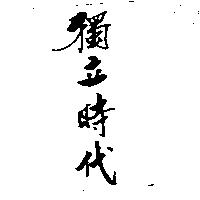 獨立時代